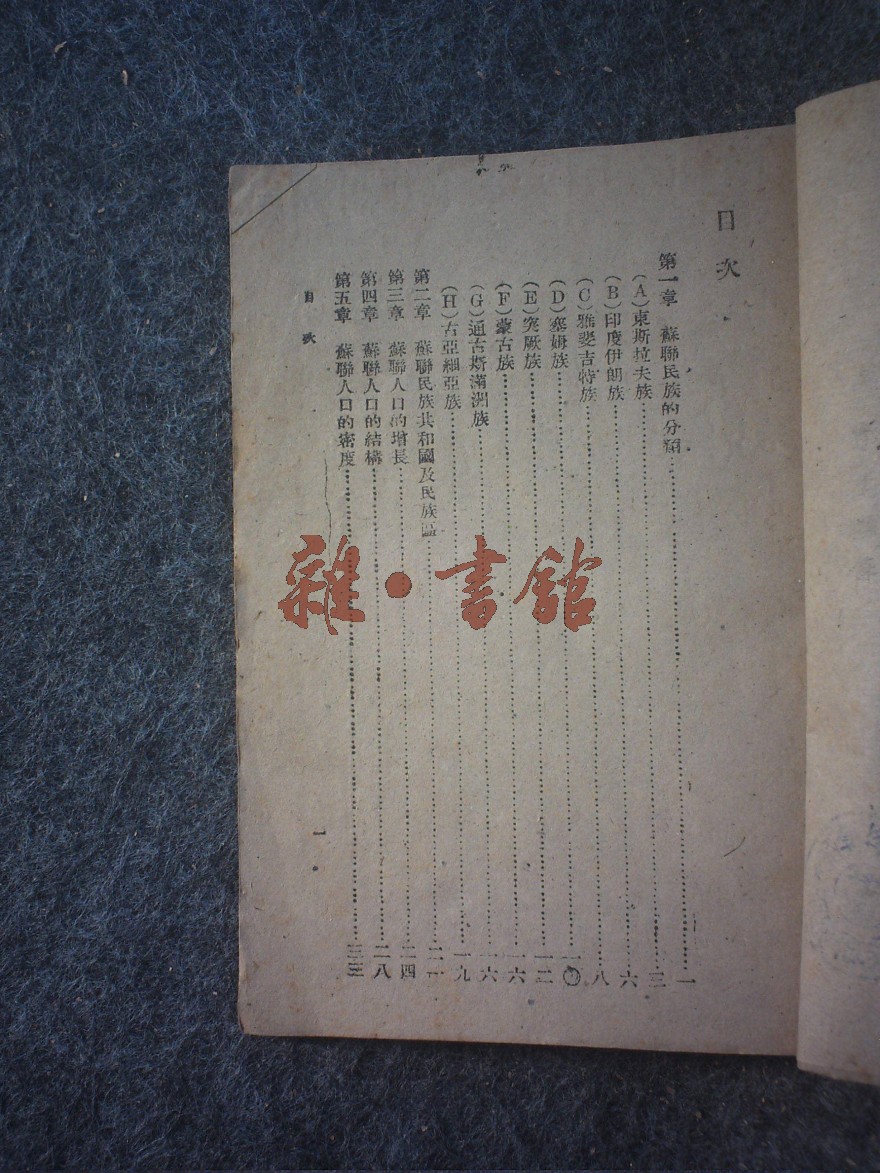 目次
第一章　蘇聯民族的分類……一
（A）東斯拉夫族……三
（B）印度伊朗族……六
（C）雅斐吉特族……八
（D）塞姆族……一〇
（E）突厥族……一二
（F）蒙古族……一六
（G）通古斯滿洲族……一六
（H）古亞細亞族……一九
第二章　蘇聯民族共和國及民族區……二一
第三章　蘇聯人口的增長……二四
第四章　蘇聯人口的結構……二八
第五章　蘇聯人口的密度……三三
目次
一
雜·書館